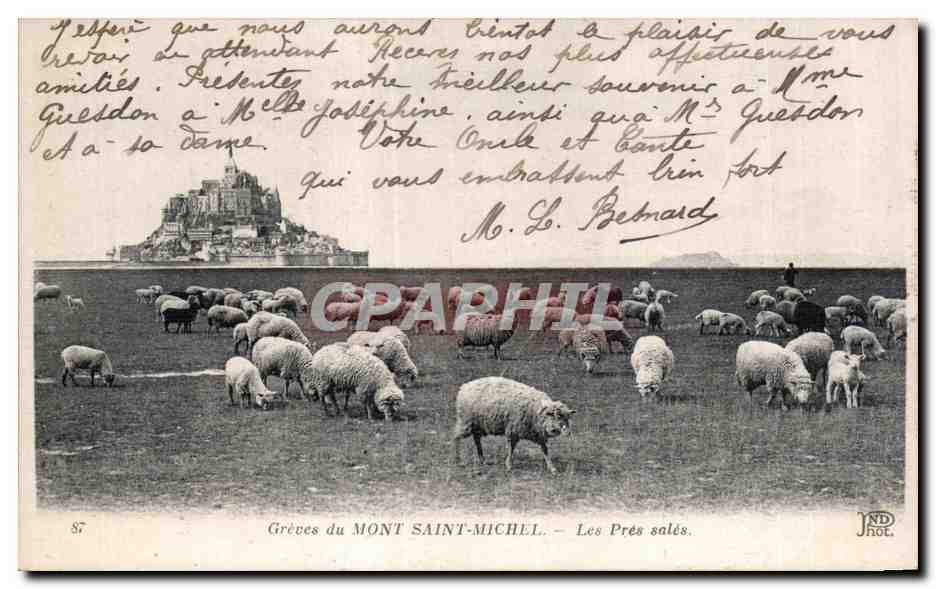 J'espère que nous aurons bientot le plaisir de vous
revoir en attendant Recevez nos plus affectueuses
amitiés. Présentez notre meilleur souvenir à Mme
Guesdon à Melle Joséphine. ainsi qu'à Mr Guesdon
et a sa dame. Votre Oncle et Tante
qui vous embrassent bien fort
M. L. Besnard
CAPHIL
87 Grèves du MONT SAINT-MICHEL. — Les Prés salés. ND Phot.